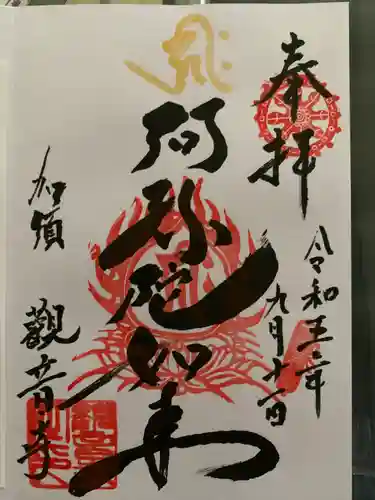 奉拝
令和五年
九月十一日
阿弥陀如来
加須
觀音寺